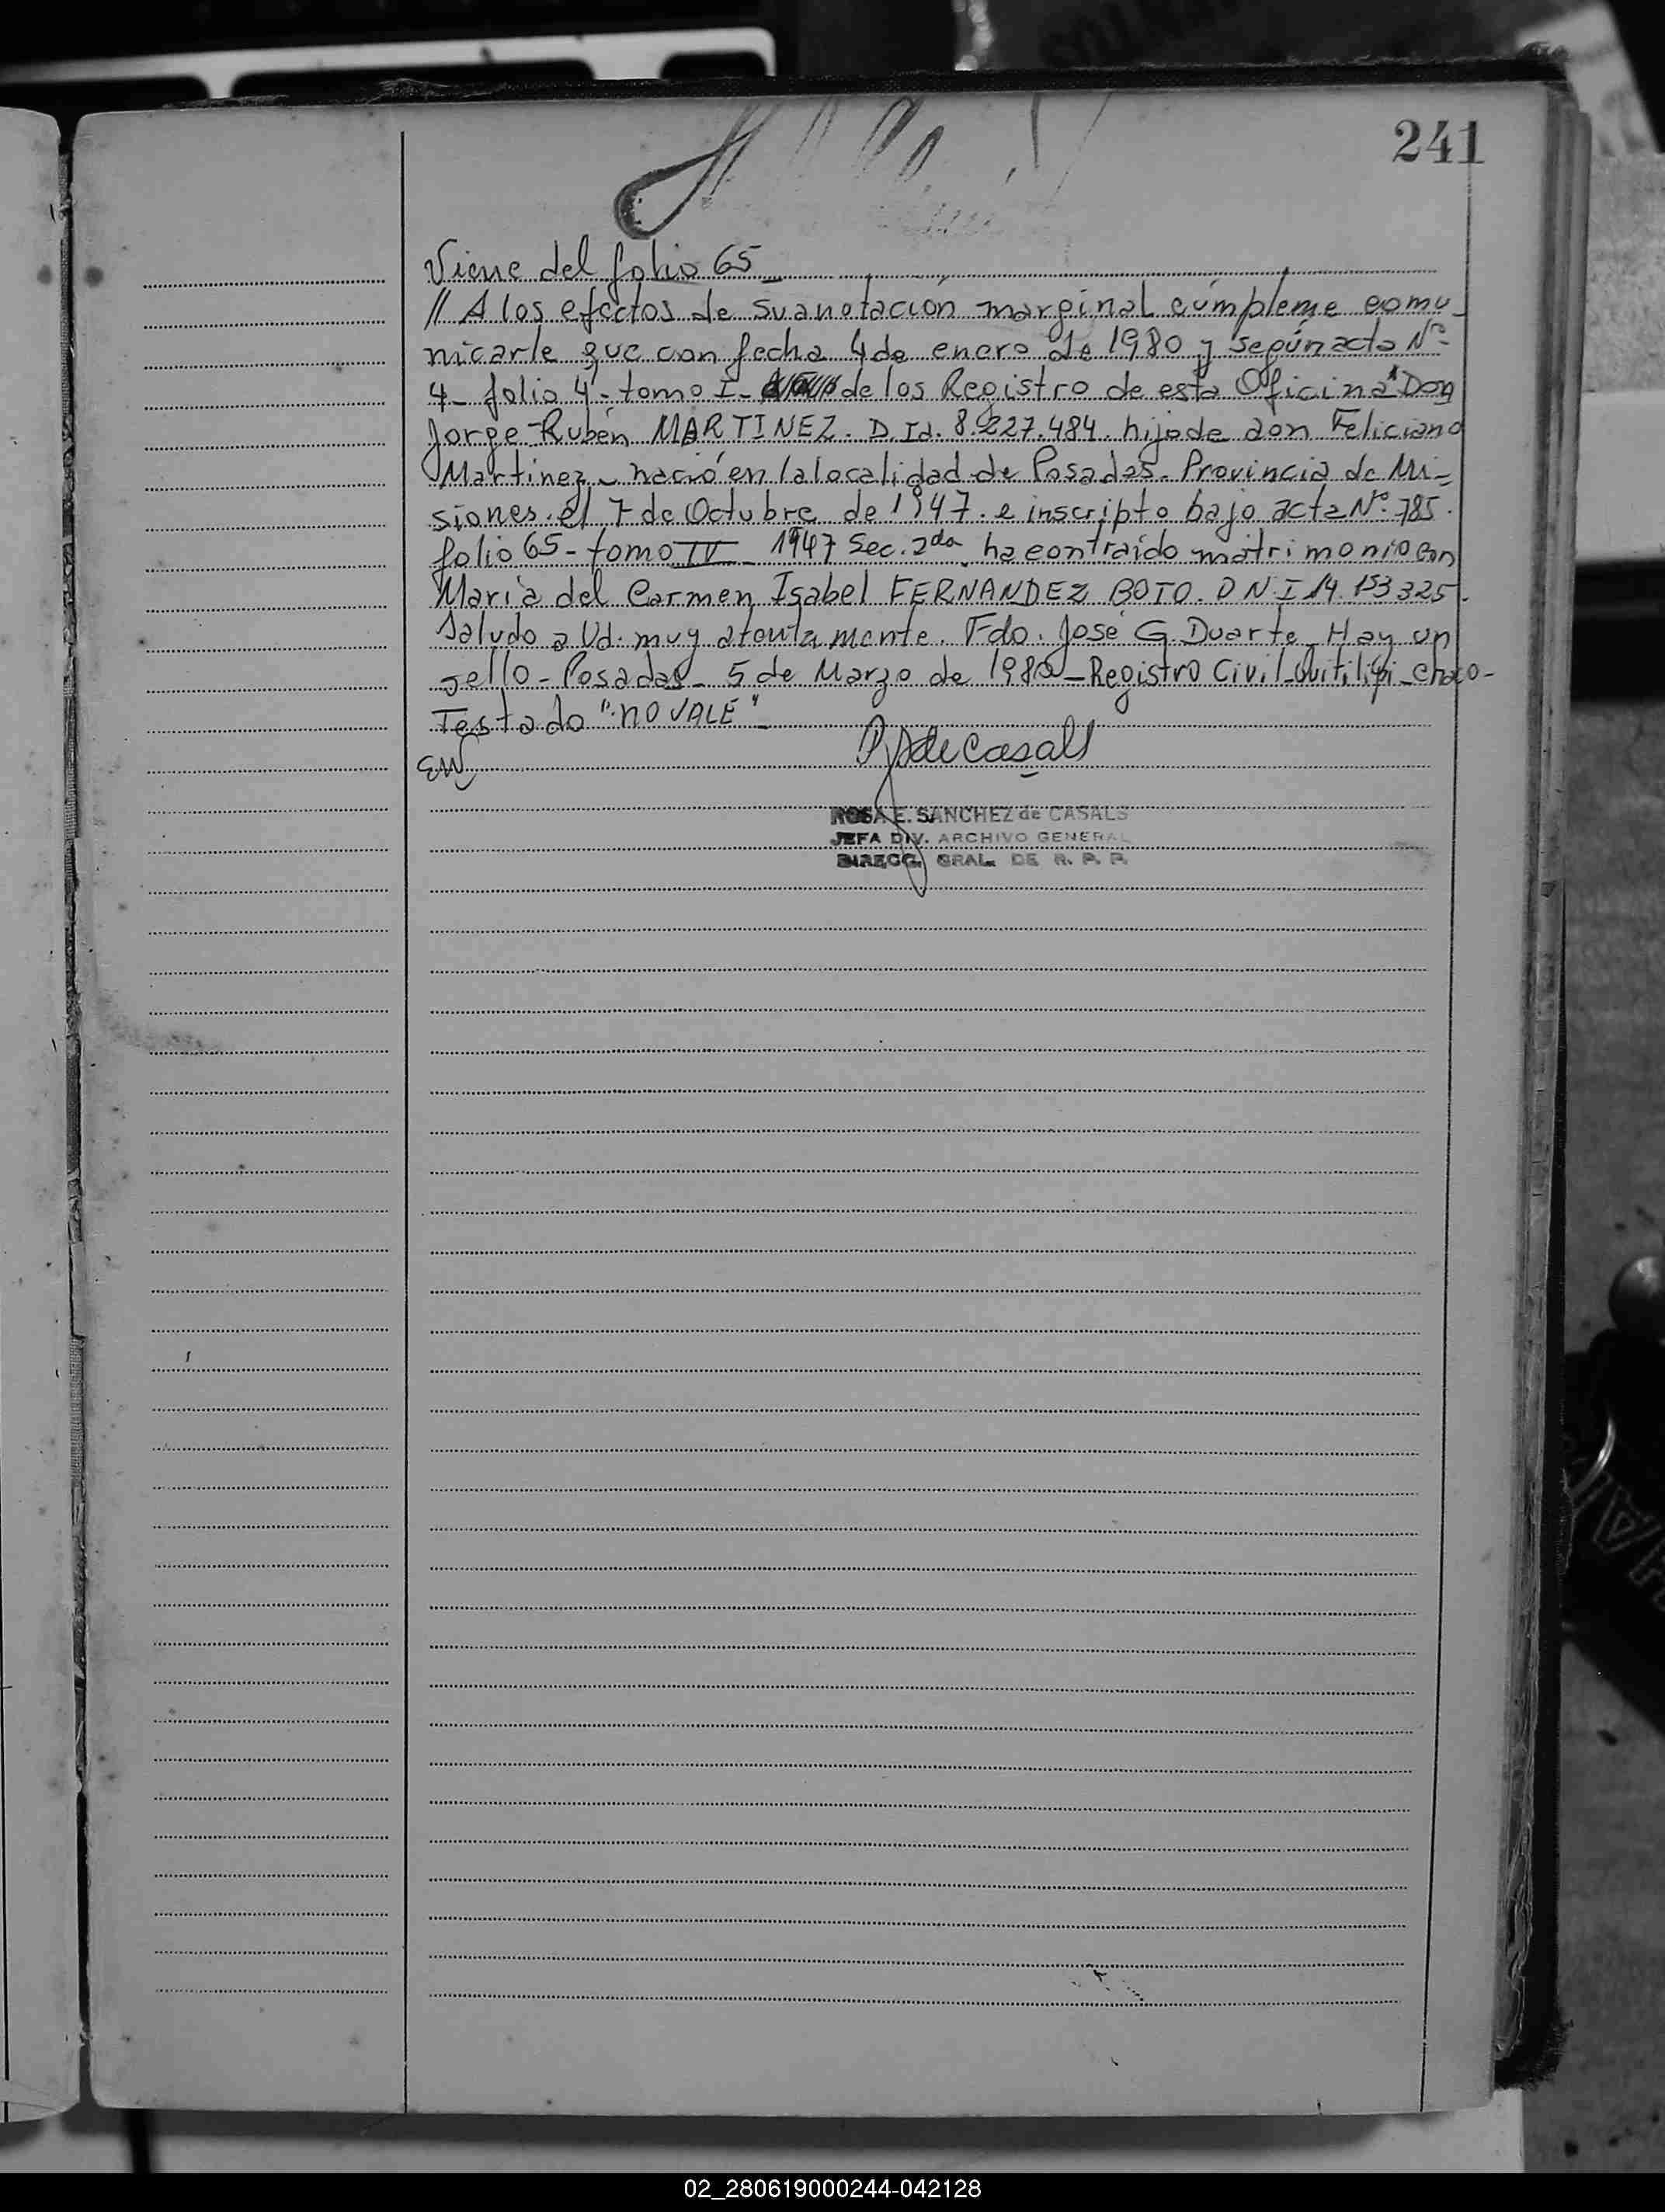 241
Viene del folio 65_
// A los efectos de su anotación marginal cúmpleme comu_
nicarle que con fecha 4 de enero de 1980 y según acta Nº
4_ folio 4_ tomo I_ de los Registro de esta Oficina "Don
Jorge Rubén MARTINEZ. D.Id. 8.227.484. hijo de don Feliciano
Martinez_ nació en la localidad de Posadas_ Provincia de Mi=
siones. el 7 de Octubre de 1947. e inscripto bajo acta Nº 785.
folio 65_ tomo IV_ 1947 Sec. 2da ha contraido matrimonio con
Maria del Carmen Isabel FERNANDEZ BOTO. D N.I 14.153325.
Saludo a Ud. muy atentamente. Fdo. José G. Duarte_ Hay un
sello_ Posadas_ 5 de Marzo de 1980_ Registro Civil_ Quitilipi_ Chaco_
Testado "NO VALE"_
RSdeCasals
ROSA E. SANCHEZ de CASALS
JEFA DIV. ARCHIVO GENERAL
DIRECC. GRAL. DE R. P. P.
02_280619000244-042128